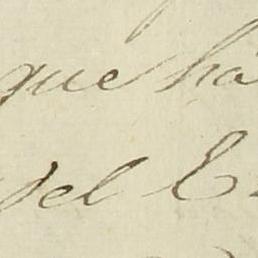 que ha
del E